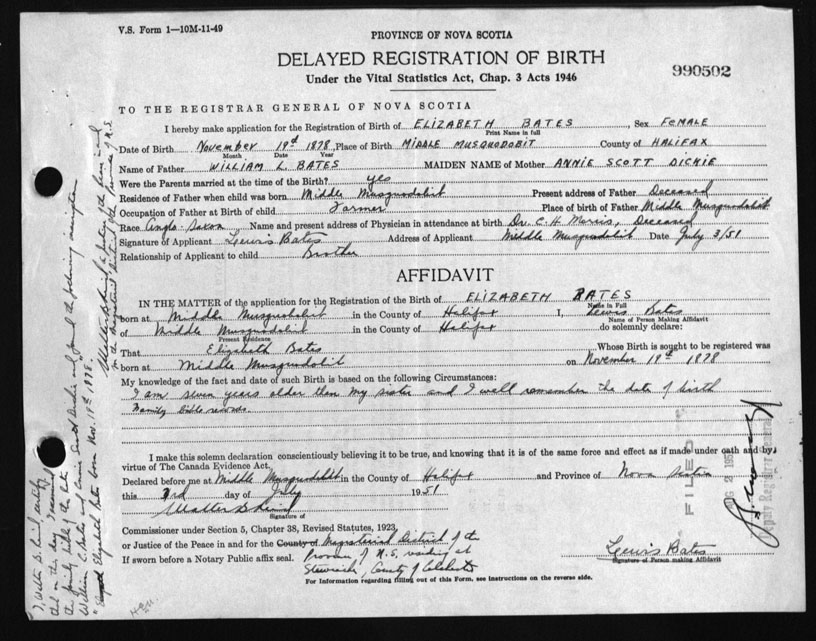 V.S. Form 1—10M-11-49
PROVINCE OF NOVA SCOTIA
DELAYED REGISTRATION OF BIRTH
Under the Vital Statistics Act, Chap. 3 Acts 1946
990502
TO THE REGISTRAR GENERAL OF NOVA SCOTIA
I hereby make application for the Registration of Birth of ELIZABETH BATES, Sex FEMALE
Print Name in full
Date of Birth November 19th 1878, Place of Birth MIDDLE MUSQUODOBIT County of HALIFAX
Month Date Year
Name of Father WILLIAM L. BATES MAIDEN NAME of Mother ANNIE SCOTT DICKIE
Were the Parents married at the time of the Birth? yes
Residence of Father when child was born Middle Musquodobit Present address of Father Deceased
Occupation of Father at Birth of child Farmer Place of birth of Father Middle Musquodobit
Race Anglo-Saxon, Name and present address of Physician in attendance at birth Dr. C. H. Morris, Deceased
Signature of Applicant Lewis Bates Address of Applicant Middle Musquodobit Date July 3/51
Relationship of Applicant to child Brother
AFFIDAVIT
IN THE MATTER of the application for the Registration of the Birth of ELIZABETH BATES
Name in Full
born at Middle Musquodobit in the County of Halifax I, Lewis Bates
Name of Person Making Affidavit
of Middle Musquodobit in the County of Halifax do solemnly declare:
Present Residence
That Elizabeth Bates, Whose Birth is sought to be registered was
born at Middle Musquodobit on November 19th 1878
My knowledge of the fact and date of such Birth is based on the following Circumstances:
I am seven years older than my sister and I well remember the date of birth
Family Bible records.
I make this solemn declaration conscientiously believing it to be true, and knowing that it is of the same force and effect as if made under oath and by
virtue of The Canada Evidence Act.
Declared before me at Middle Musquodobit in the County of Halifax and Province of Nova Scotia
this 3rd day of July 1951
Signature of
Commissioner under Section 5, Chapter 38, Revised Statutes, 1923,
or Justice of the Peace in and for the County of Magisterial District of the
If sworn before a Notary Public affix seal. Province of N.S. residing at
Stewiacke, County of Colchester
Lewis Bates
Signature of Person making Affidavit
For Information regarding filling out of this Form, see instructions on the reverse side.
FILED